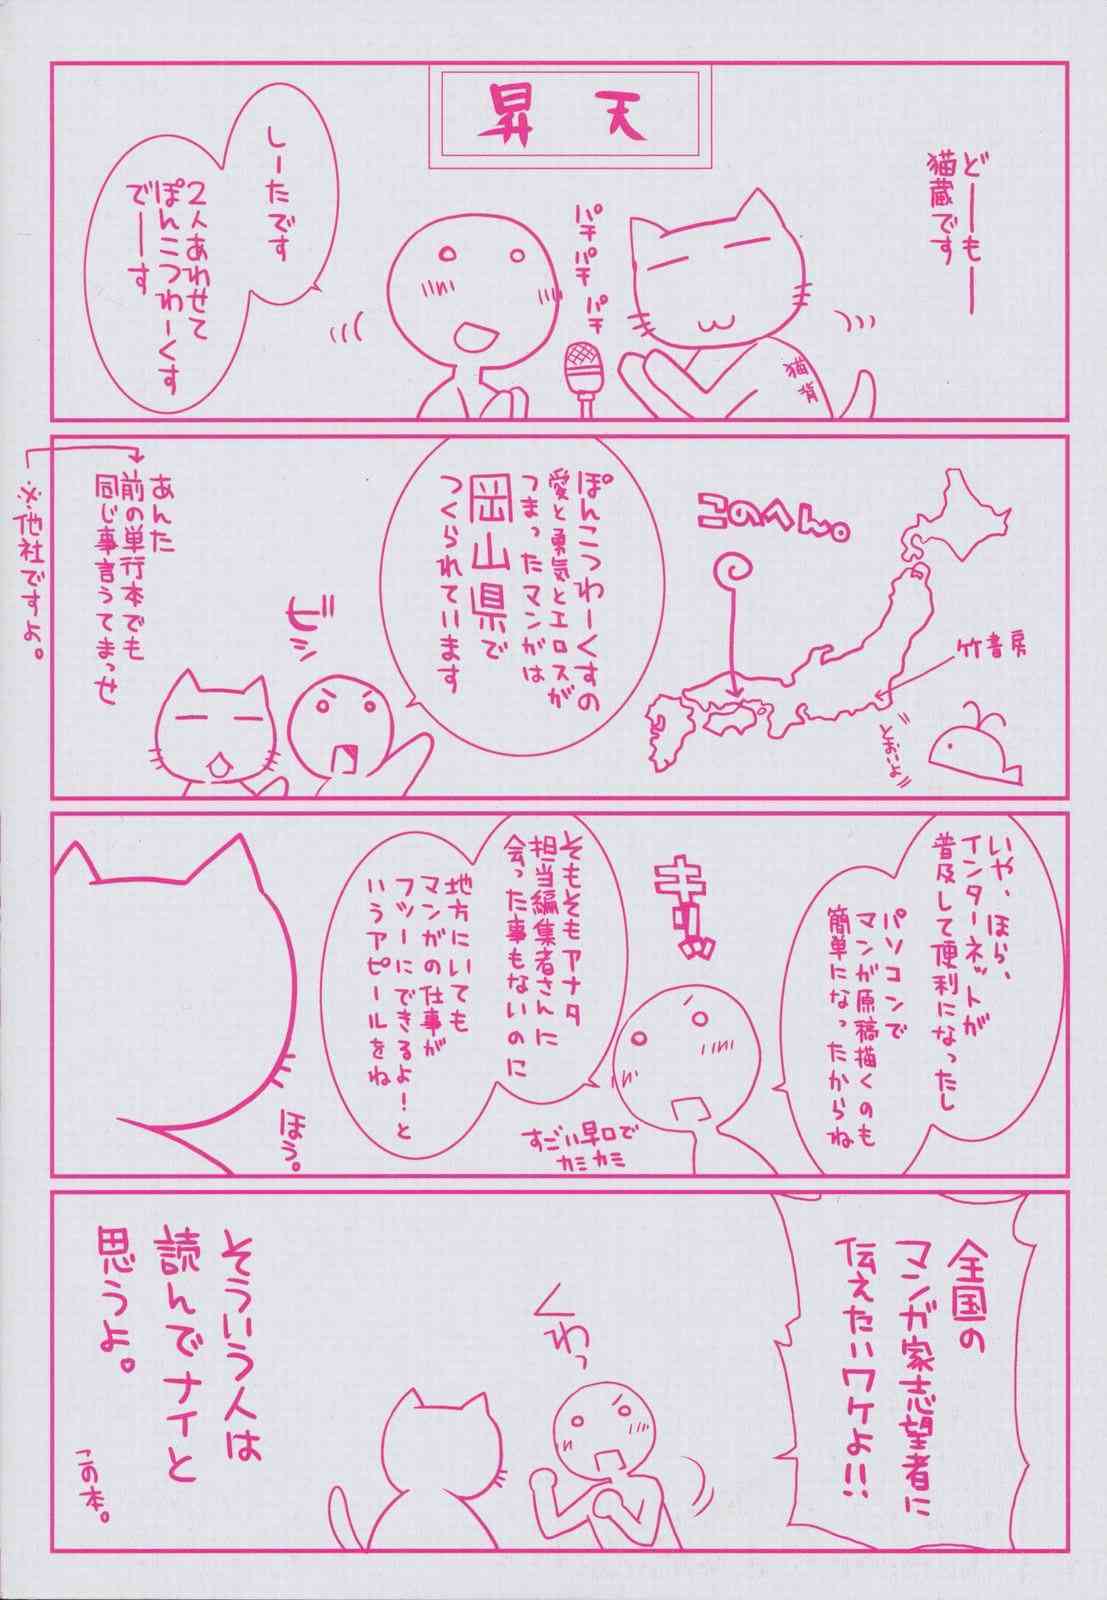 昇天
どーもー
猫蔵です
パチ
パチ
パチ
猫背
しーたです
2人あわせて
ぽんこつわーくす
でーーす
このへん。
竹書房
とおいよ
ぽんこつわーくすの
愛と勇気とエロスが
つまったマンガは
岡山県で
つくられています
ビシ
あんた
前の単行本でも
同じ事言うてまっせ
※他社ですよ。
いや、ほら、
インターネットが
普及して便利になったし
パソコンで
マンガ原稿描くのも
簡単になったからね
キリッ
すごい早口で
カミカミ
そもそもアナタ
担当編集者さんに
会った事もないのに
地方にいても
マンガの仕事が
フツーにできるよ!と
いうアピールをね
ほう。
全国の
マンガ家志望者に
伝えたいワケよ!!
くわっ
そういう人は
読んでナイと
思うよ。
この本。